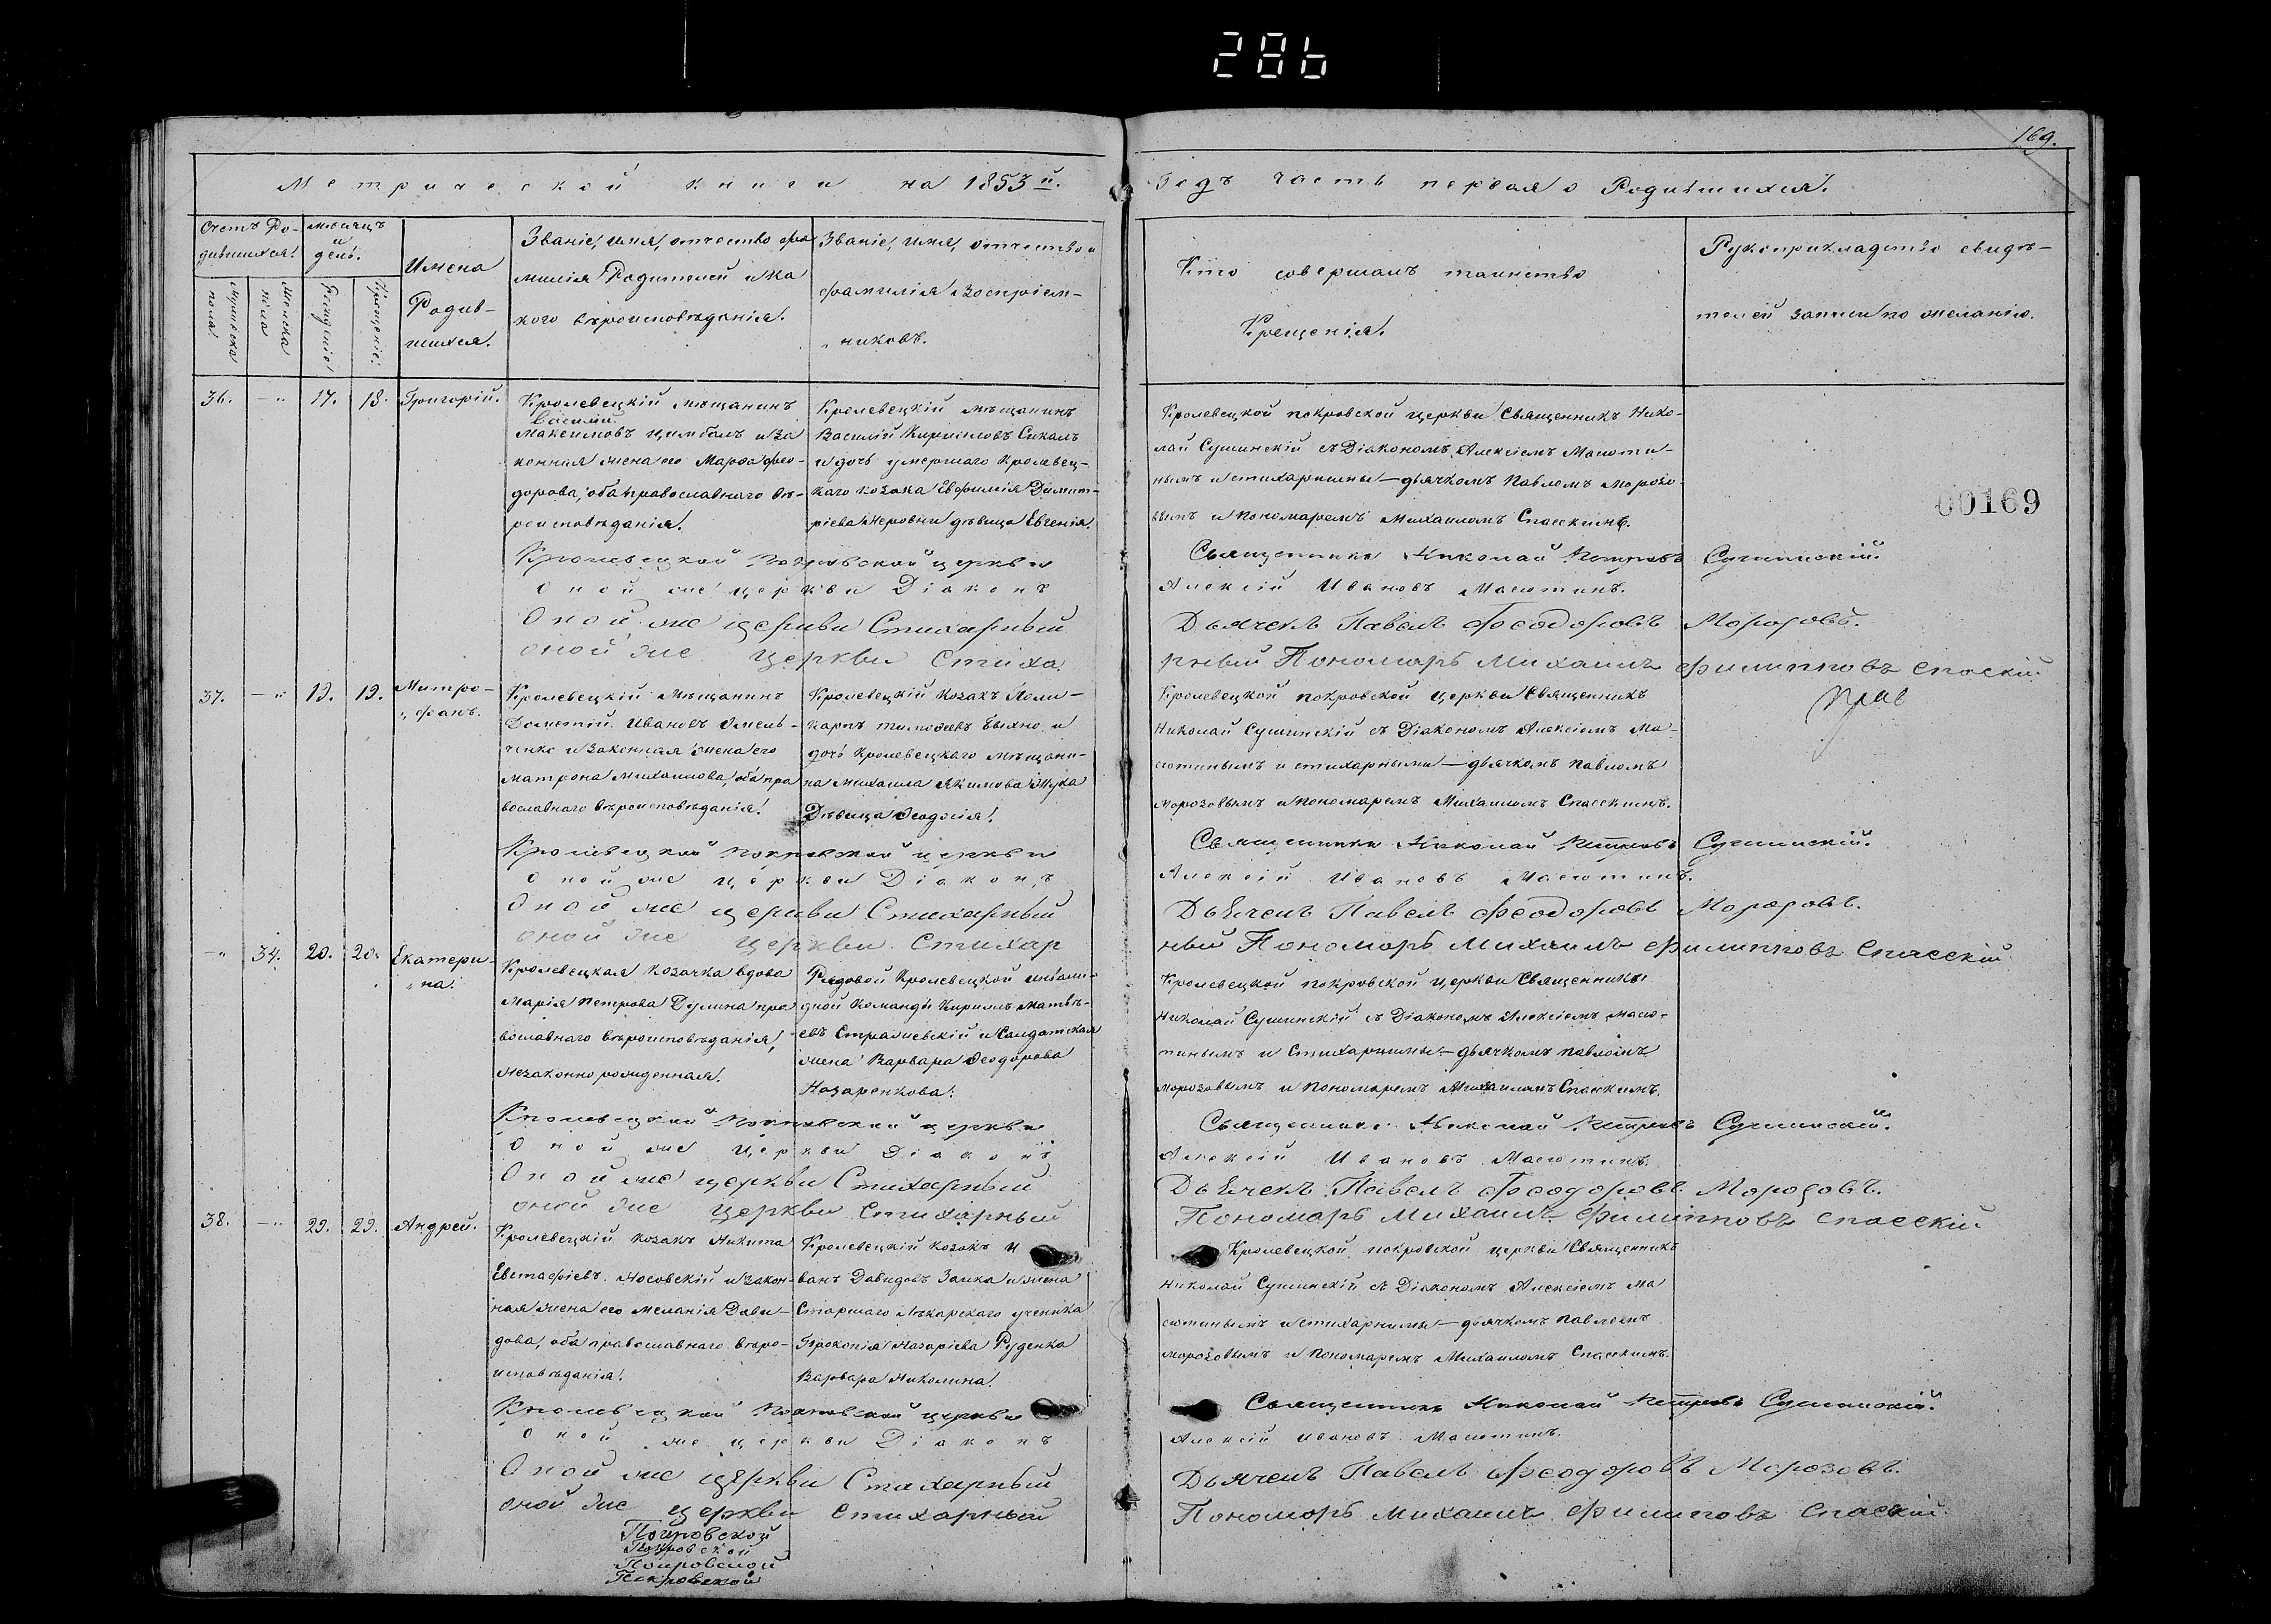 286
169.
Метрической книги на 1853й.
Годъ часть первая о Родившихся.
Счетъ Родившихся.
Мужеска пола
Женска пола
месяцъ и день.
Рожденіе
Крещеніе.
Имена Родившихся.
Званіе, имя, отчество фамилія Родителей и какого вѣроисповѣданія.
Званіе, имя, отчество и фамилія Воспріемниковъ.
Кто совершалъ таинство Крещенія.
Рукоприкладство свидѣтелей записи по желанію.
36. — " 17. 18. Григорій.
Кролевецкій мѣщанинъ
Василій
Максимовъ Цимбалъ и за
конная жена его Марфа Фео-
дорова, оба православнаго вѣ-
роисповѣданія.
Кролевецкій мѣщанинъ
Василій Кириловъ Сикалъ
и дочь умершаго Кролевец-
каго козака Евфимія Димит-
ріева девица Евгенія.
Кролевецкой покровской церкви Священникъ Нико-
лай Сушинскій съ Діакономъ Алексіемъ Масюти-
нымъ и стихарными — дьячкомъ Павломъ Морозо-
вымъ и пономаремъ Михаиломъ Спасскимъ.
00169
Кролевецкой Покровской церкви Священникъ Николай Петровъ Сушинскій.
Оной же церкви Діаконъ Алексій Ивановъ Масютинъ.
Оной же церкви Стихарный Дьячекъ Павелъ Феодоровъ Морозовъ.
оной же церкви Стихарный Пономарь Михаилъ Филипповъ Спаскій
37. — " 19. 19. Митро-
фанъ.
Кролевецкій Мѣщанинъ
Дометій Ивановъ Омель-
ченко и Законная жена его
Матрона Михаилова, оба пра
вославнаго вѣроисповѣданія.
Кролевецкій Козакъ Поли-
карпъ Тимофеевъ и
дочь Кролевецкаго Мѣщани-
на Михаила Якимова Жука
Дѣвица Феодосія.
Кролевецкой покровской Церкви Священникъ
Николай Сушинскій съ Діакономъ Алексіемъ Ма-
сютинымъ и стихарными — дьячкомъ Павломъ
Морозовымъ и пономаремъ Михаиломъ Спасскимъ.
Кролевецкой покровской церкви Священникъ Николай Петровъ Сушинскій.
Оной же церкви Діаконъ Алексій Ивановъ Масютинъ.
Оной же церкви Стихарный Дьячекъ Павелъ Феодоровъ Морозовъ.
оной же церкви Стихарный Пономарь Михаилъ Филипповъ Спасскій
— " 34. 20. 20. Екатери-
на.
Кролевецкая козачка вдова
Марія Петрова Дулина пра
вославнаго вѣроисповѣданія,
незаконно рожденная.
Рядовой Кролевецкой инвали-
дной Команды Кириллъ Матвѣ-
евъ Стражевскій и Салдатская
жена Варвара Феодорова
Назаренкова.
Кролевецкой покровской церкви Священникъ
Николай Сушинскій съ Діакономъ Алексіемъ Масю-
тинымъ и Стихарными — дьячкомъ Павломъ
Морозовымъ и пономаремъ Михаиломъ Спасскимъ.
Кролевецкой Покровской церкви Священникъ Николай Петровъ Сушинскій.
Оной же церкви Діаконъ Алексій Ивановъ Масютинъ.
Оной же церкви Стихарный Дьячекъ Павелъ Феодоровъ Морозовъ.
оной же церкви Стихарный Пономарь Михаилъ Филипповъ Спасскій
38. — " 29. 29. Андрей.
Кролевецкій козакъ Никита
Евстафіевъ Носовскій и закон-
ная жена его Меланія Дави-
дова, оба православнаго вѣро-
исповѣданія.
Кролевецкій козакъ И
ванъ Давидовъ Заика и жена
Старшаго лѣкарскаго ученика
Прокопія Назаріева Руденка
Варвара Николина.
Кролевецкой покровской церкви Священникъ
Николай Сушинскій съ Діакономъ Алексіемъ Ма
сютинымъ и стихарными — дьячкомъ Павломъ
Морозовымъ и пономаремъ Михаиломъ Спасскимъ.
Кролевецкой Покровской церкви Священникъ Николай Петровъ Сушинскій.
Оной же церкви Діаконъ Алексій Ивановъ Масютинъ.
Оной же церкви Стихарный Дьячекъ Павелъ Феодоровъ Морозовъ.
оной же церкви стихарный Пономарь Михаилъ Филиповъ Спаскій
Покровской
Покровской
Покровской
Покровской